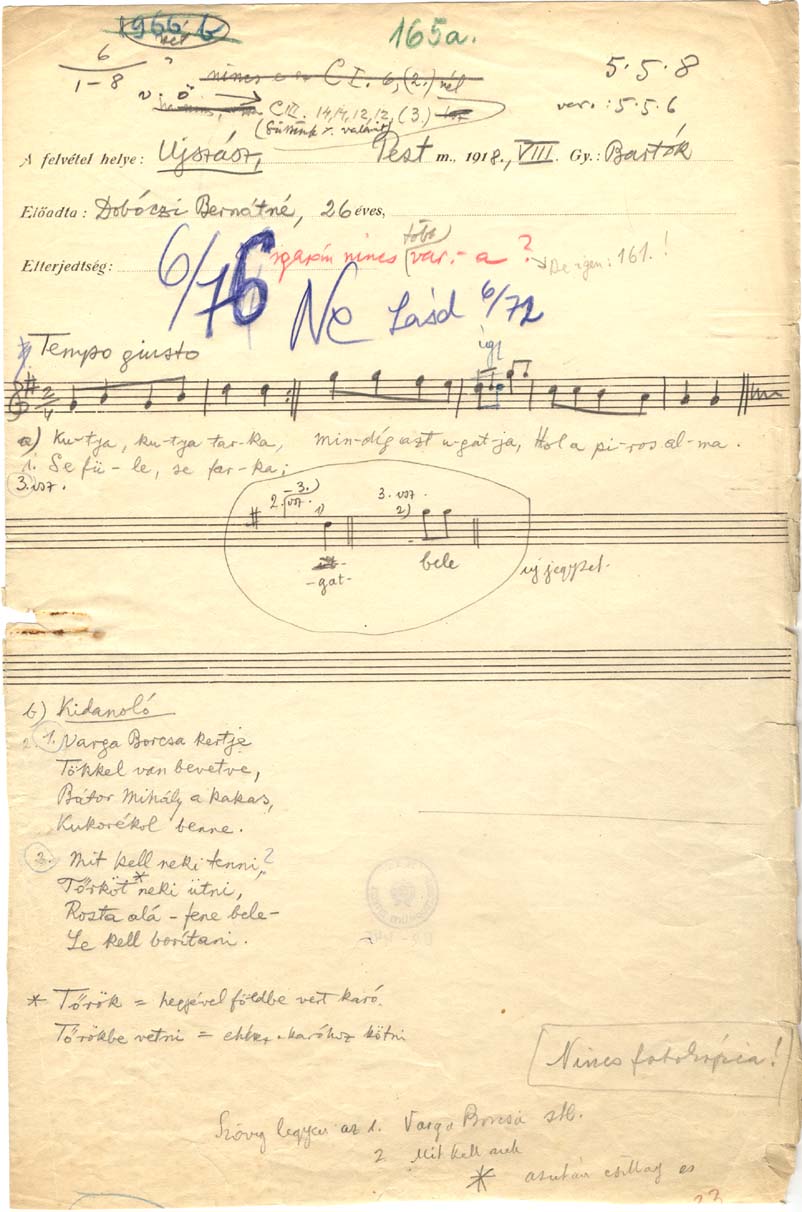 1966, b
165a.
6
1-8
?
nincs CI. 6, (2.) nél
5. 5. 8
v. ö
CIII. 14,14,12,12, (3.)
var. : 5. 5. 6
A felvétel helye: Ujszász, Pest m., 1918., VIII. Gy.: Bartók
Előadta: Dobóczi Bernátné, 26 éves,
Elterjedtség:
6/76
igazán nincs (több) var.-a ?
De igen: 161. !
Ne Lásd 6/72
Tempo giusto
így
a) Ku-tya, ku-tya tar-ka, min-díg azt u-gat-ja, Hol a pi-ros al-ma.
1. Se fü-le, se far-ka;
3. vsz.
2. -3.) vsz. 1)
3. vsz. 2)
-gat- bele
új jegyzet
b) Kidanoló
1. Varga Borcsa kertje
Tökkel van bevetve,
Bátor Mihály a kakas,
Kukorékol benne.
3. Mit kell neki tenni?
Tőrköt* neki ütni,
Rosta alá - fene bele-
Le kell borítani.
* Tőrök = hegjével földbe vert karó.
Tőrökbe vetni = karóhoz kötni
Nincs fotokópia!
Szöveg legyen az 1. Varga Borcsa stb.
2 Mit kell nek
* azután csillag es
23